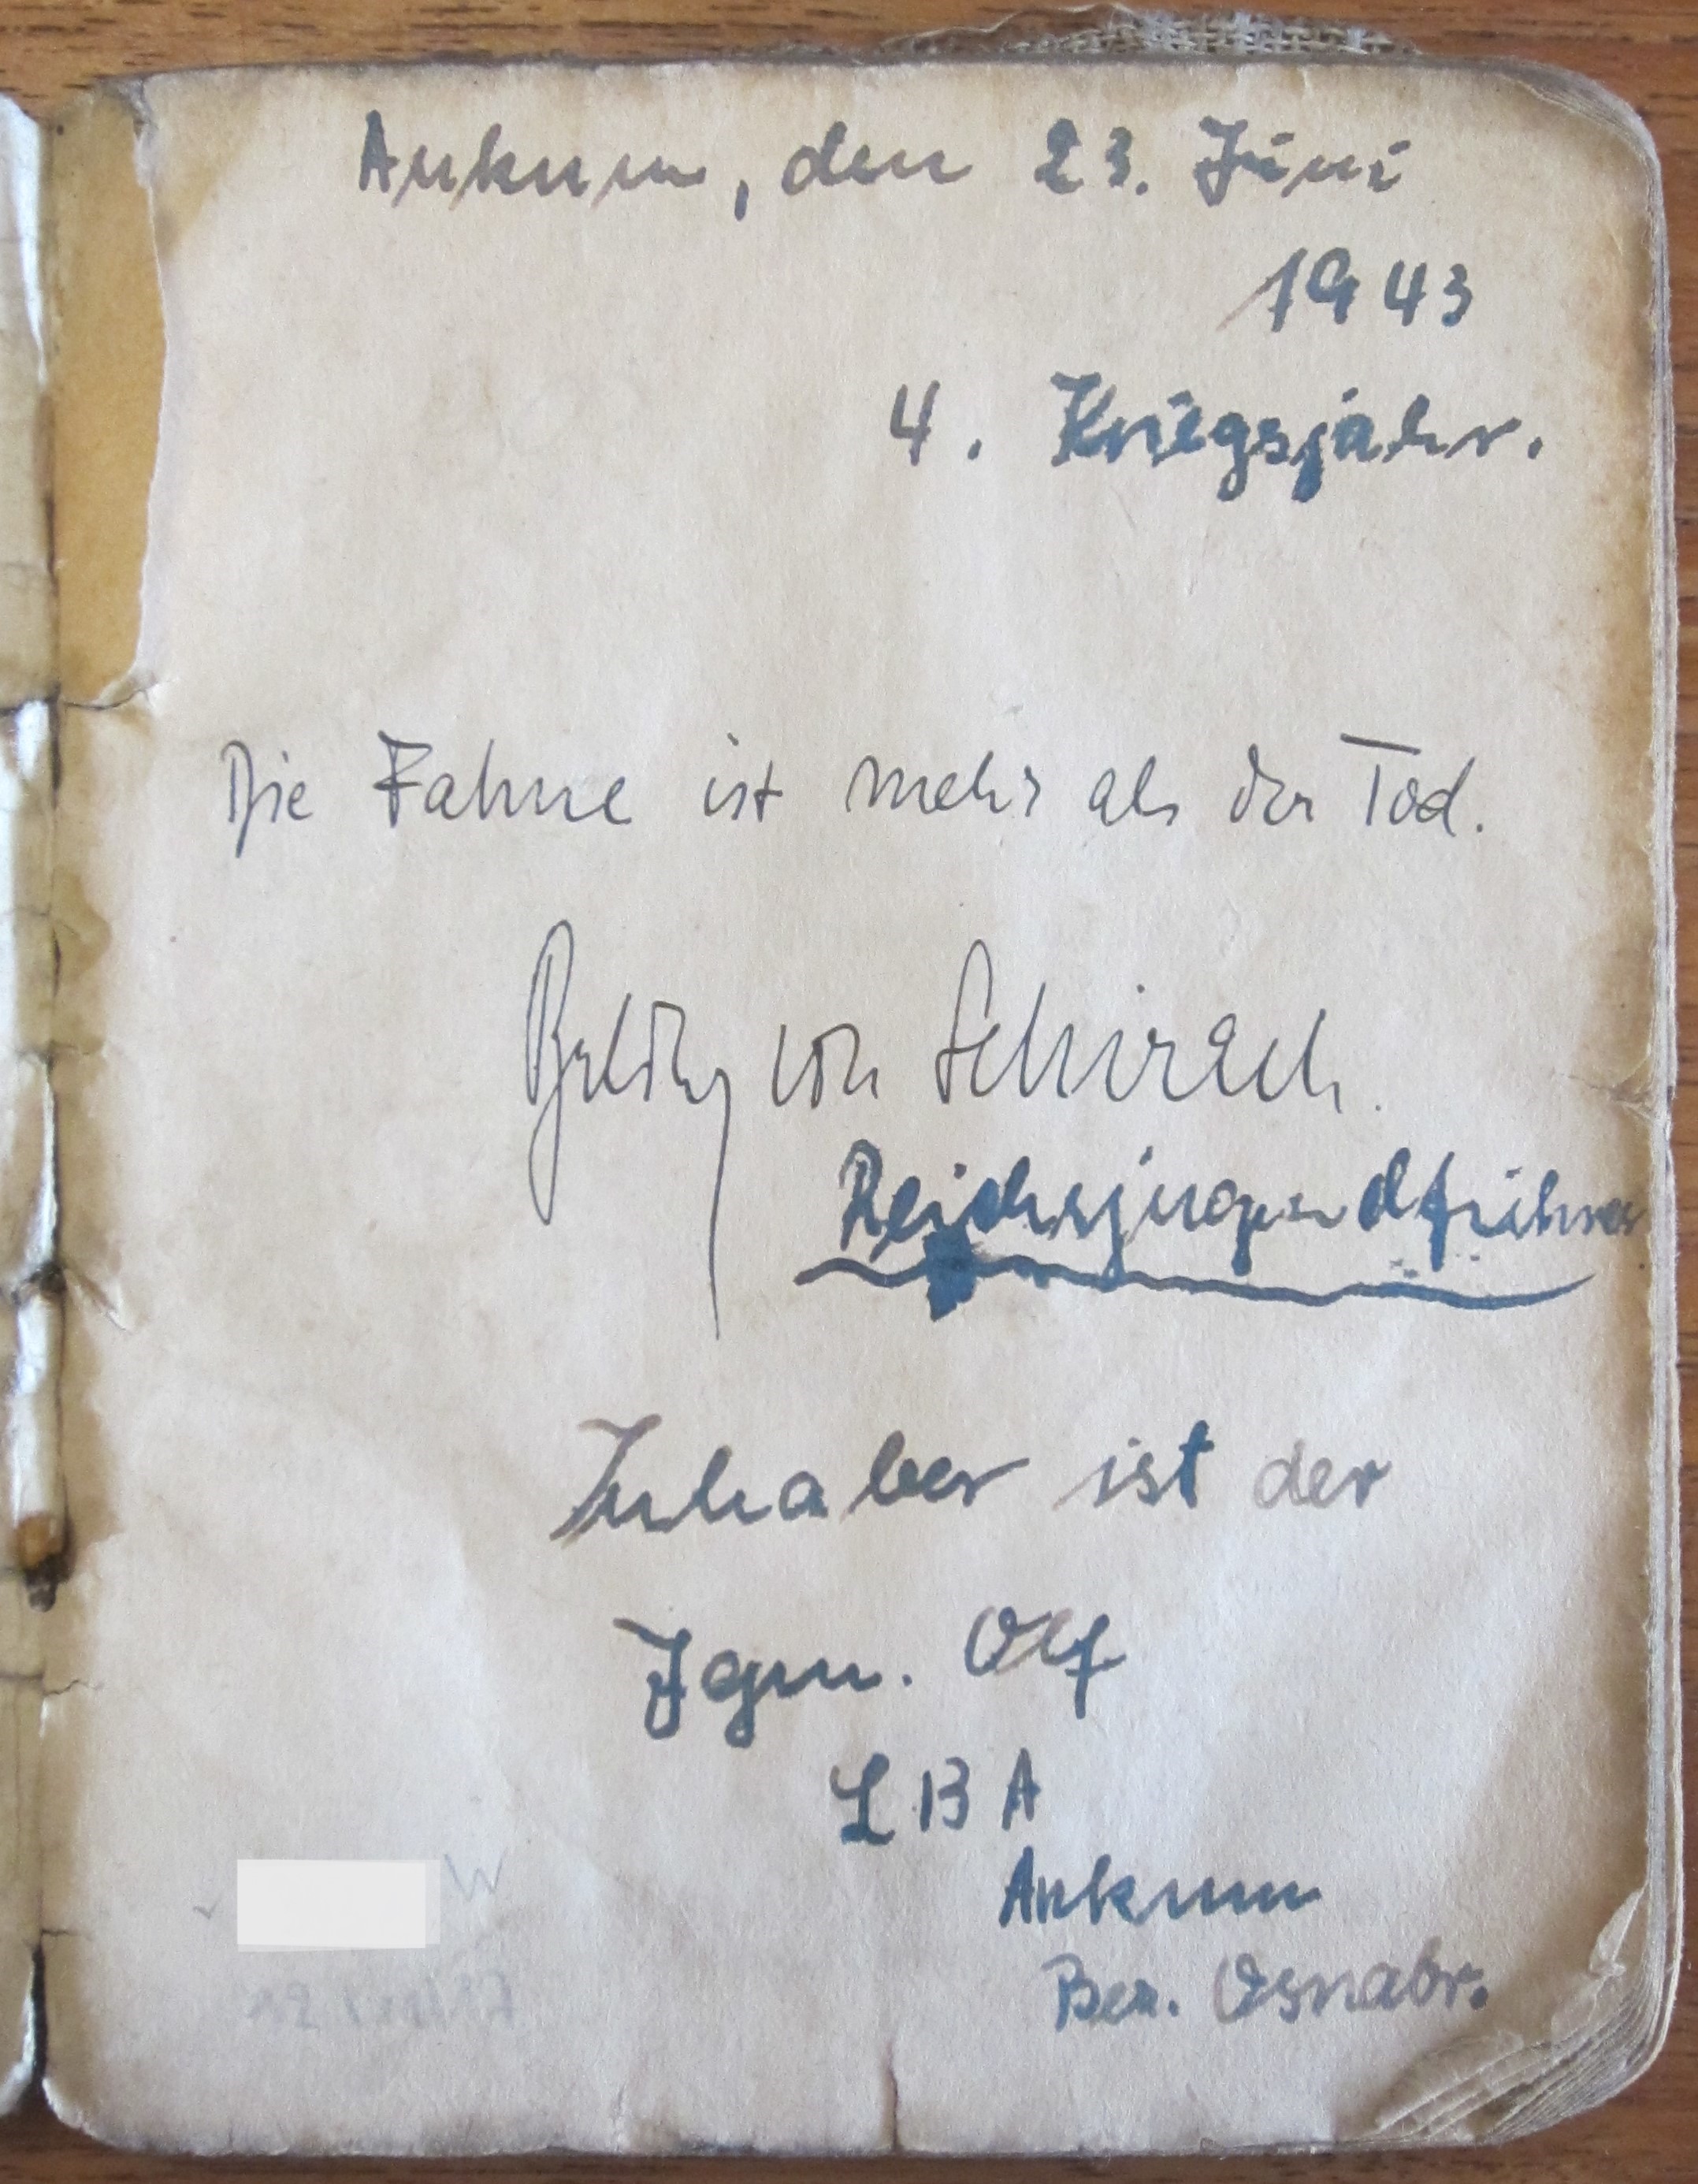 Ankum, den 23. Juni
1943
4. Kriegsjahr.
Die Fahne ist mehr als der Tod.
Baldur von Schirach.
Reichsjugendführer
Inhaber ist der
Jgm. Olf
L B A
Ankum
Bez. Osnabr.
W